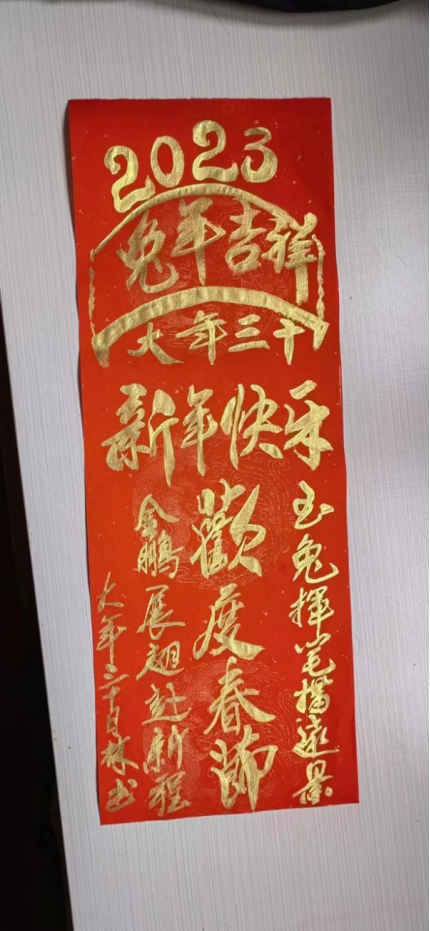 2023
兔年吉祥
大年三十
新年快乐
玉兔揮笔描遠景
歡度春節
金鵬展翅赴新程
大年三十日林书